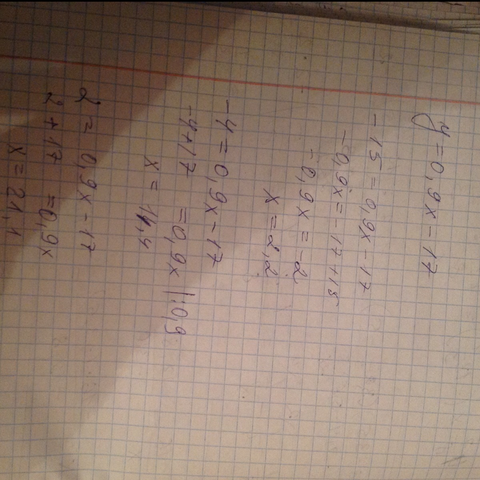 y = 0,9x - 17
-15 = 0,9x - 17
-0,9x = -17 + 15
-0,9x = -2
x = 2,2
-4 = 0,9x - 17
-4 + 17 = 0,9x |:0,9
x = 14,4
2 = 0,9x - 17
2 + 17 = 0,9x
x = 21,1